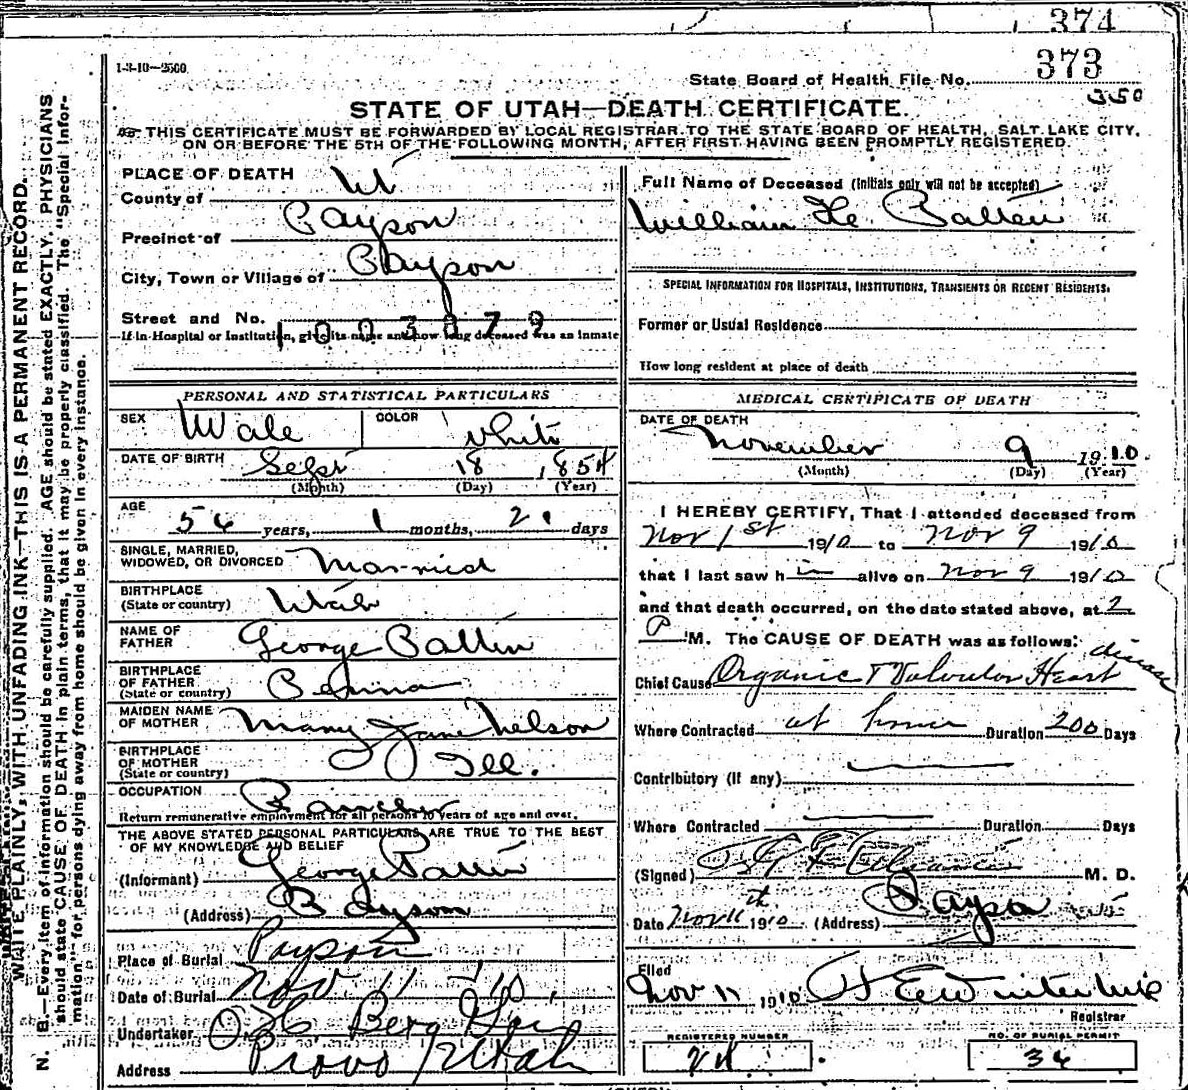 374
1-3-10—2500
State Board of Health File No. 373
350
STATE OF UTAH—DEATH CERTIFICATE.
THIS CERTIFICATE MUST BE FORWARDED BY LOCAL REGISTRAR TO THE STATE BOARD OF HEALTH, SALT LAKE CITY,
ON OR BEFORE THE 5TH OF THE FOLLOWING MONTH, AFTER FIRST HAVING BEEN PROMPTLY REGISTERED.
N. B.—Every item of information should be carefully supplied. AGE should be stated EXACTLY. PHYSICIANS
should state CAUSE OF DEATH in plain terms, that it may be properly classified. The "Special Infor-
mation" for persons dying away from home should be given in every instance.
WRITE PLAINLY, WITH UNFADING INK—THIS IS A PERMANENT RECORD.
PLACE OF DEATH
County of Ut
Precinct of Payson
City, Town or Village of Payson
Street and No.
1003879
If in Hospital or Institution, give its name and how long deceased was an inmate
PERSONAL AND STATISTICAL PARTICULARS
SEX Male COLOR White
DATE OF BIRTH Sept 18 1854
(Month) (Day) (Year)
AGE 56 years, 1 months, 21 days
SINGLE, MARRIED,
WIDOWED, OR DIVORCED Married
BIRTHPLACE
(State or country) Utah
NAME OF
FATHER George Patten
BIRTHPLACE
OF FATHER
(State or country)
MAIDEN NAME
OF MOTHER Mary Jane Nelson
BIRTHPLACE
OF MOTHER
(State or country) Ill.
OCCUPATION Rancher
Return remunerative employment for all persons 10 years of age and over.
THE ABOVE STATED PERSONAL PARTICULARS ARE TRUE TO THE BEST
OF MY KNOWLEDGE AND BELIEF
(Informant) George Patten
(Address) Payson
Place of Burial Payson
Date of Burial Nov 11 -10,
Undertaker O. H. Berg
Address Provo Utah
Full Name of Deceased (Initials only will not be accepted)
William He. Patten
SPECIAL INFORMATION FOR HOSPITALS, INSTITUTIONS, TRANSIENTS OR RECENT RESIDENTS.
Former or Usual Residence
How long resident at place of death
MEDICAL CERTIFICATE OF DEATH
DATE OF DEATH
November 9 1910.
(Month) (Day) (Year)
I HEREBY CERTIFY, That I attended deceased from
Nov 1st 1910 to Nov 9 1910
that I last saw him alive on Nov 9 1910
and that death occurred, on the date stated above, at 2
P M. The CAUSE OF DEATH was as follows:
Chief Cause Organic & Valvular Heart disease
Where Contracted at home Duration 200 Days
Contributory (if any)
Where Contracted Duration Days
(Signed) M. D.
Date Nov 11th 1910 (Address) Payson
Filed
Nov 11 1910
Registrar
REGISTERED NUMBER
NO. OF BURIAL PERMIT
74
36